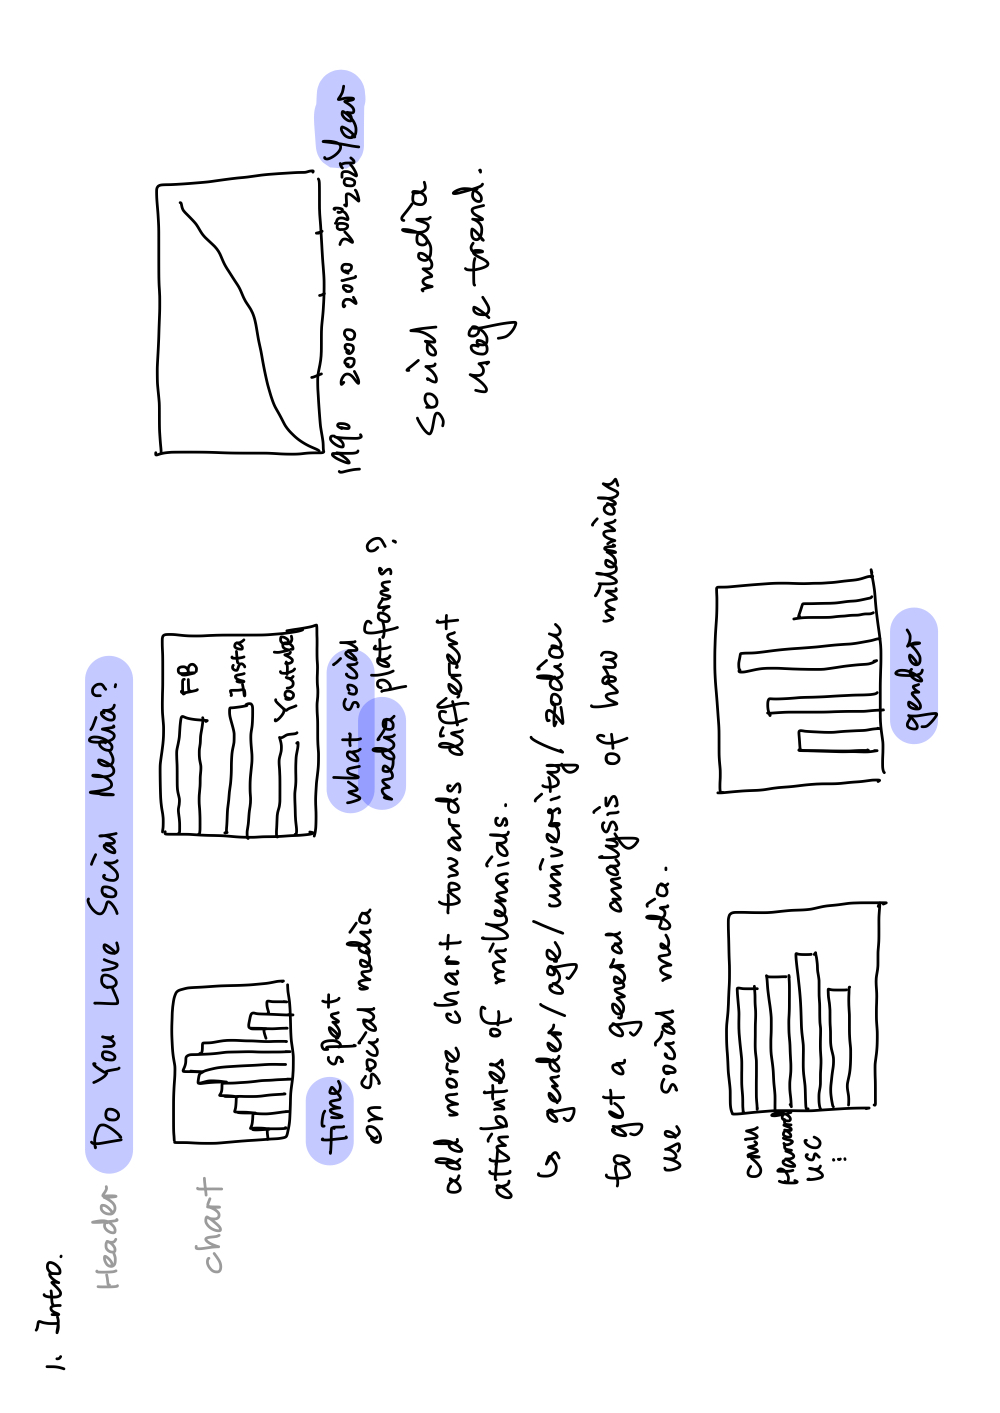 1. Intro.
Header Do You Love Social Media?
chart
FB
Insta
Youtube
time spent
on social media
what social
media platforms?
1990 2000 2010 2020 2022 Year
social media
usage trend.
add more chart towards different
attributes of millennials.
↳ gender/age/university/zodiac
to get a general analysis of how millennials
use social media.
CMU
Harvard
USC
⋮
gender